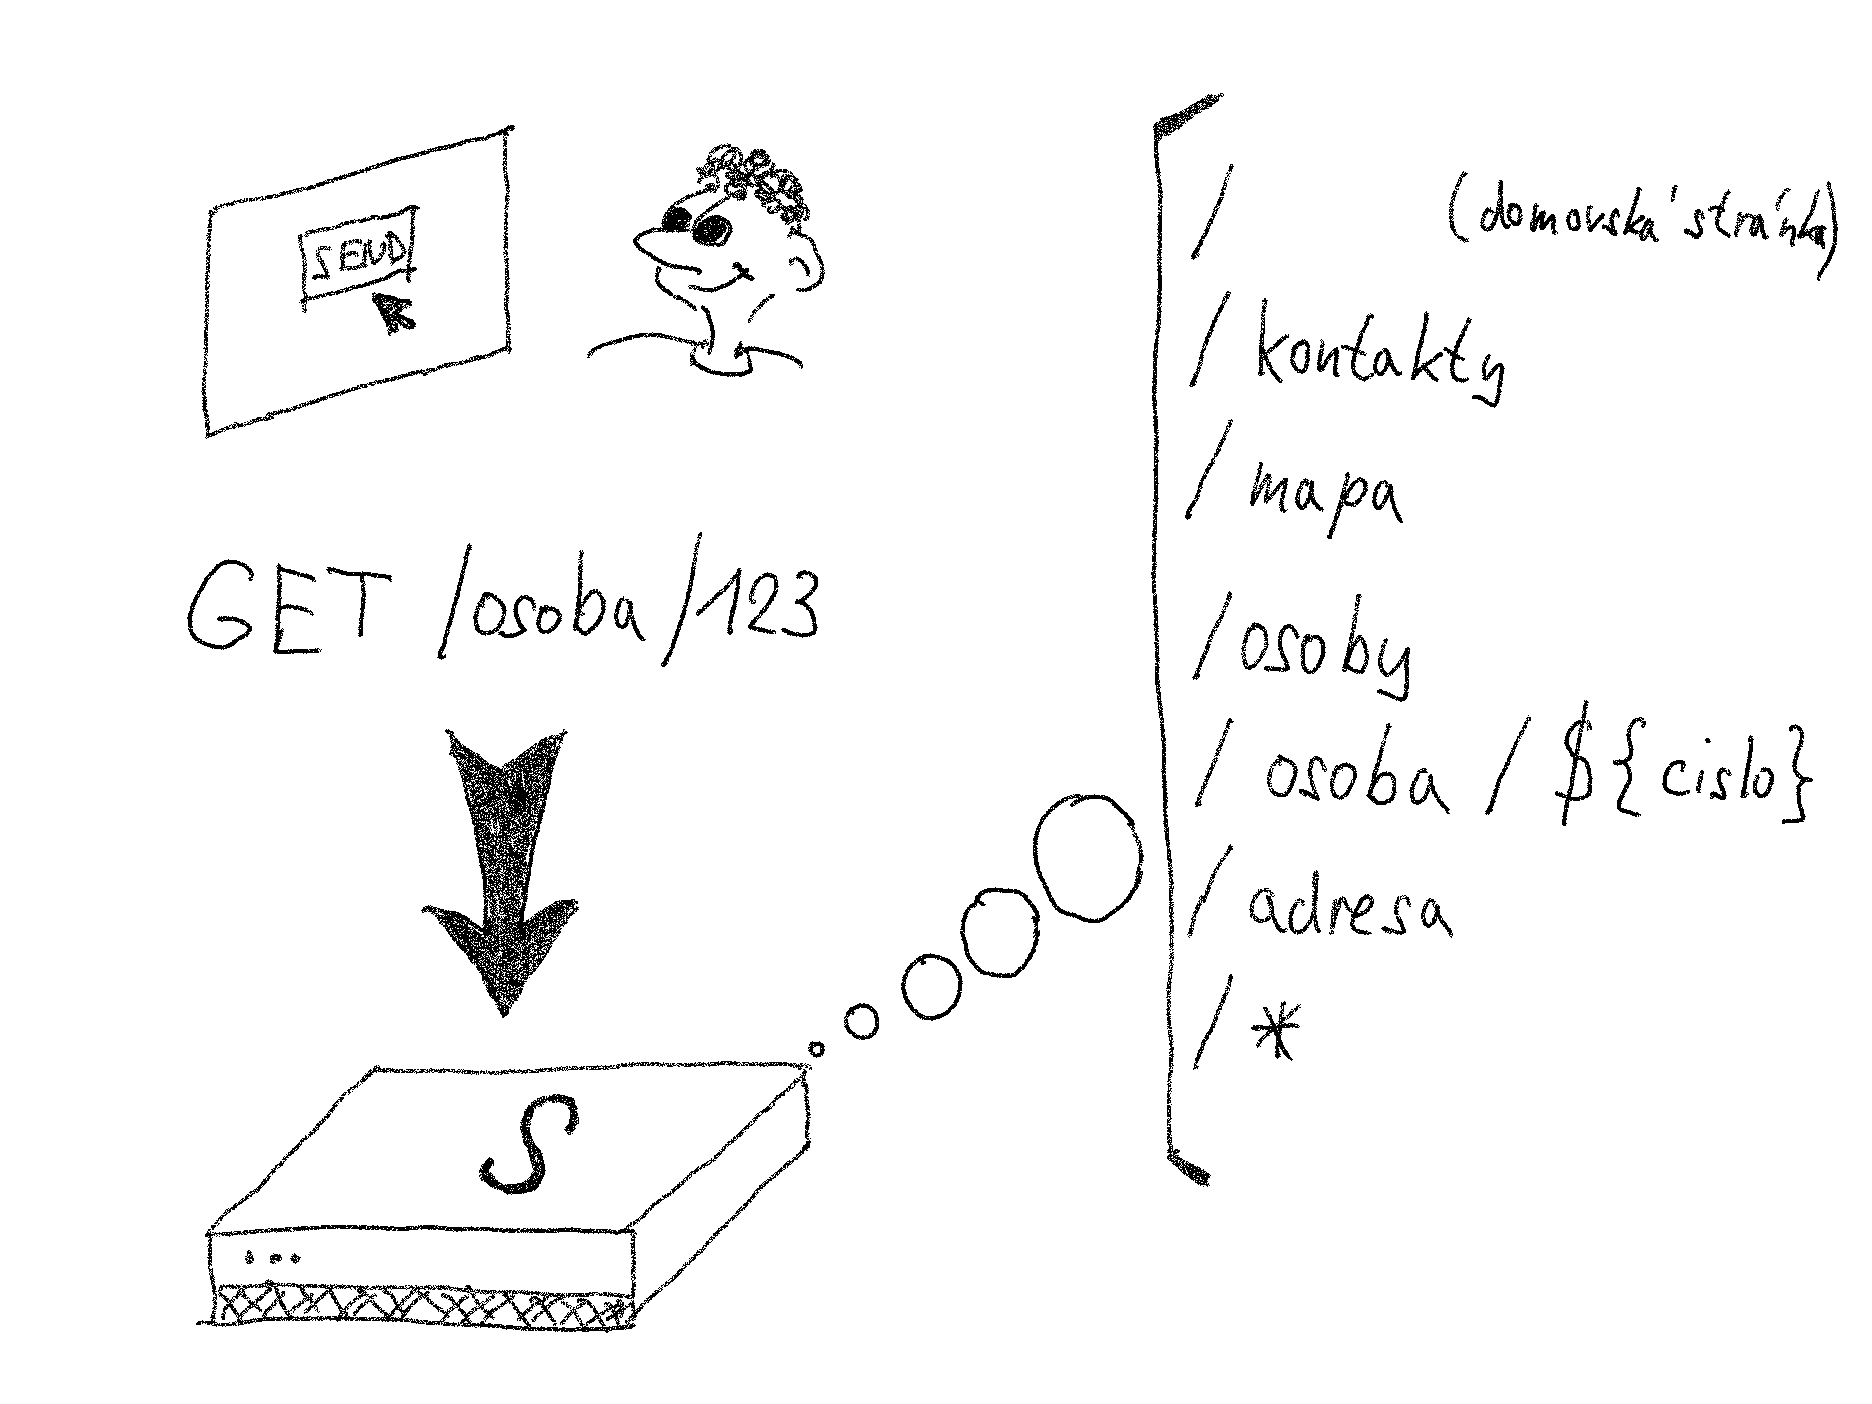 SEND
GET /osoba/123
S
/ (domovská stránka)
/kontakty
/mapa
/osoby
/osoba/${cislo}
/adresa
/*